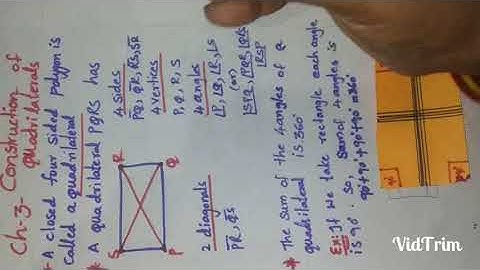 Ch-3- Construction of
quadrilaterals
* A closed four sided polygon is
called a quadrilateral
* A quadrilateral PQRS has
4 sides
PQ, QR, RS, SR
4 vertices
P, Q, R, S
4 angles
∠P, ∠Q, ∠R, ∠S
(or)
∠SPQ, ∠PQR, ∠QRS
∠RSP
S R
P Q
2 diagonals
PR, QS
* The sum of the 4 angles of a
quadrilateral is 360°
Ex: If we take rectangle each angle
is 90°. So, sum of 4 angles is
90°+90°+90°+90°=360°
90°
VidTrim